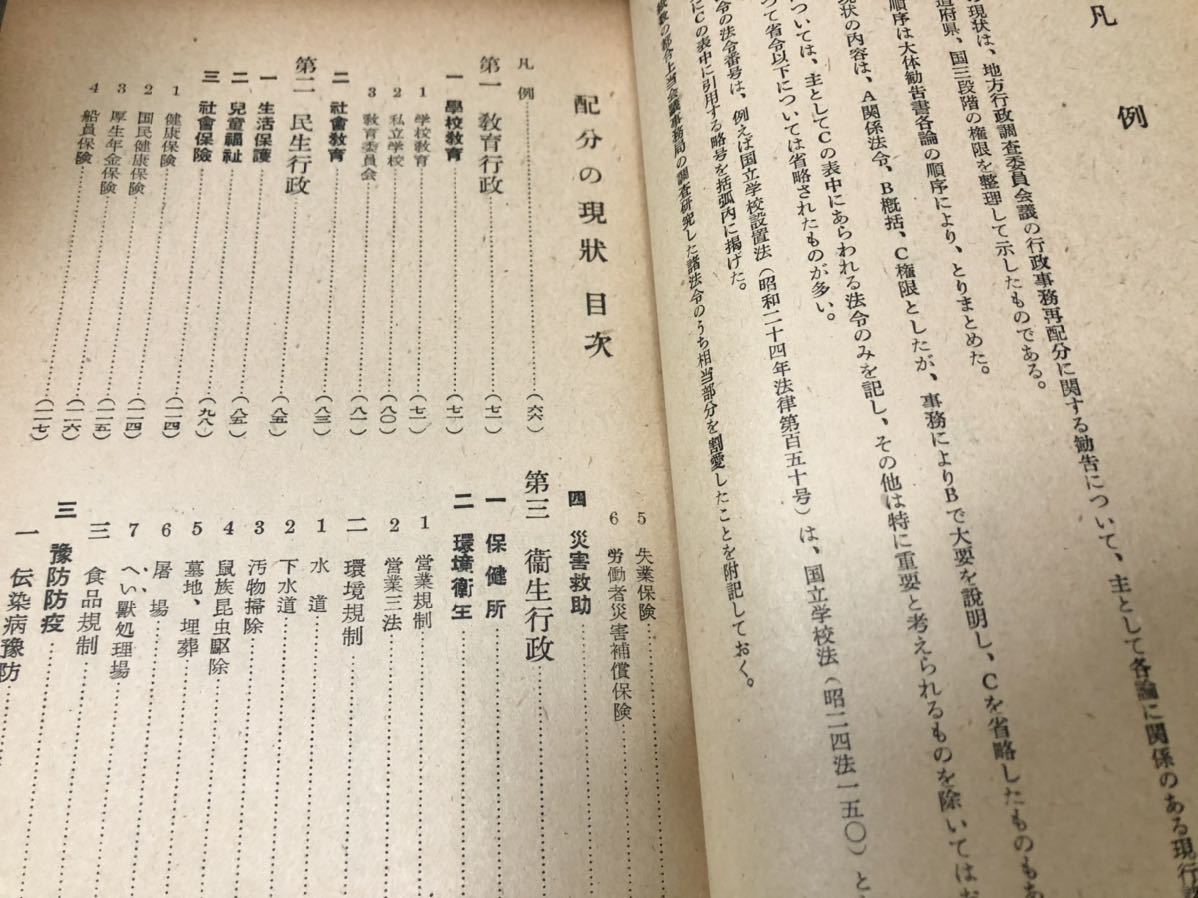 凡例
現状は、地方行政調査委員会議の行政事務再配分に関する勧告について、主として各論に関係のある現行
道府県、国三段階の権限を整理して示したものである。
順序は大体勧告書各論の順序により、とりまとめた。
現状の内容は、A関係法令、B概括、C権限としたが、事務によりBで大要を説明し、Cを省略したものもあ
については、主としてCの表中にあらわれる法令のみを記し、その他は特に重要と考えられるものを除いてはお
つて省令以下については省略されたものが多い。
令の法令番号は、例えば国立学校設置法(昭和二十四年法律第百五十号)は、国立学校法(昭二四法一五〇)と
にCの表中に引用する略号を括弧内に掲げた。
の都合上当会議事務局の調査研究した諸法令のうち相当部分を割愛したことを附記しておく。
配分の現状 目次
凡例……(六六)
第一 教育行政……(七一)
一 學校教育……(七一)
1 学校教育……(七一)
2 私立学校……(八〇)
3 教育委員会……(八一)
二 社會教育……(八三)
第二 民生行政……(八五)
一 生活保護……(八五)
二 兒童福祉……(九八)
三 社會保險……(一一四)
1 健康保険……(一一四)
2 国民健康保険……(一一五)
3 厚生年金保険……(一一六)
4 船員保険……(一一七)
5 失業保険
6 労働者災害補償保険
四 災害救助
第三 衞生行政
一 保健所
二 環境衞生
1 営業規制
2 営業三法
二 環境規制
1 水道
2 下水道
3 汚物掃除
4 鼠族昆虫駆除
5 墓地、埋葬
6 屠場
7 へい獣処理場
三 食品規制
三 豫防防疫
一 伝染病豫防